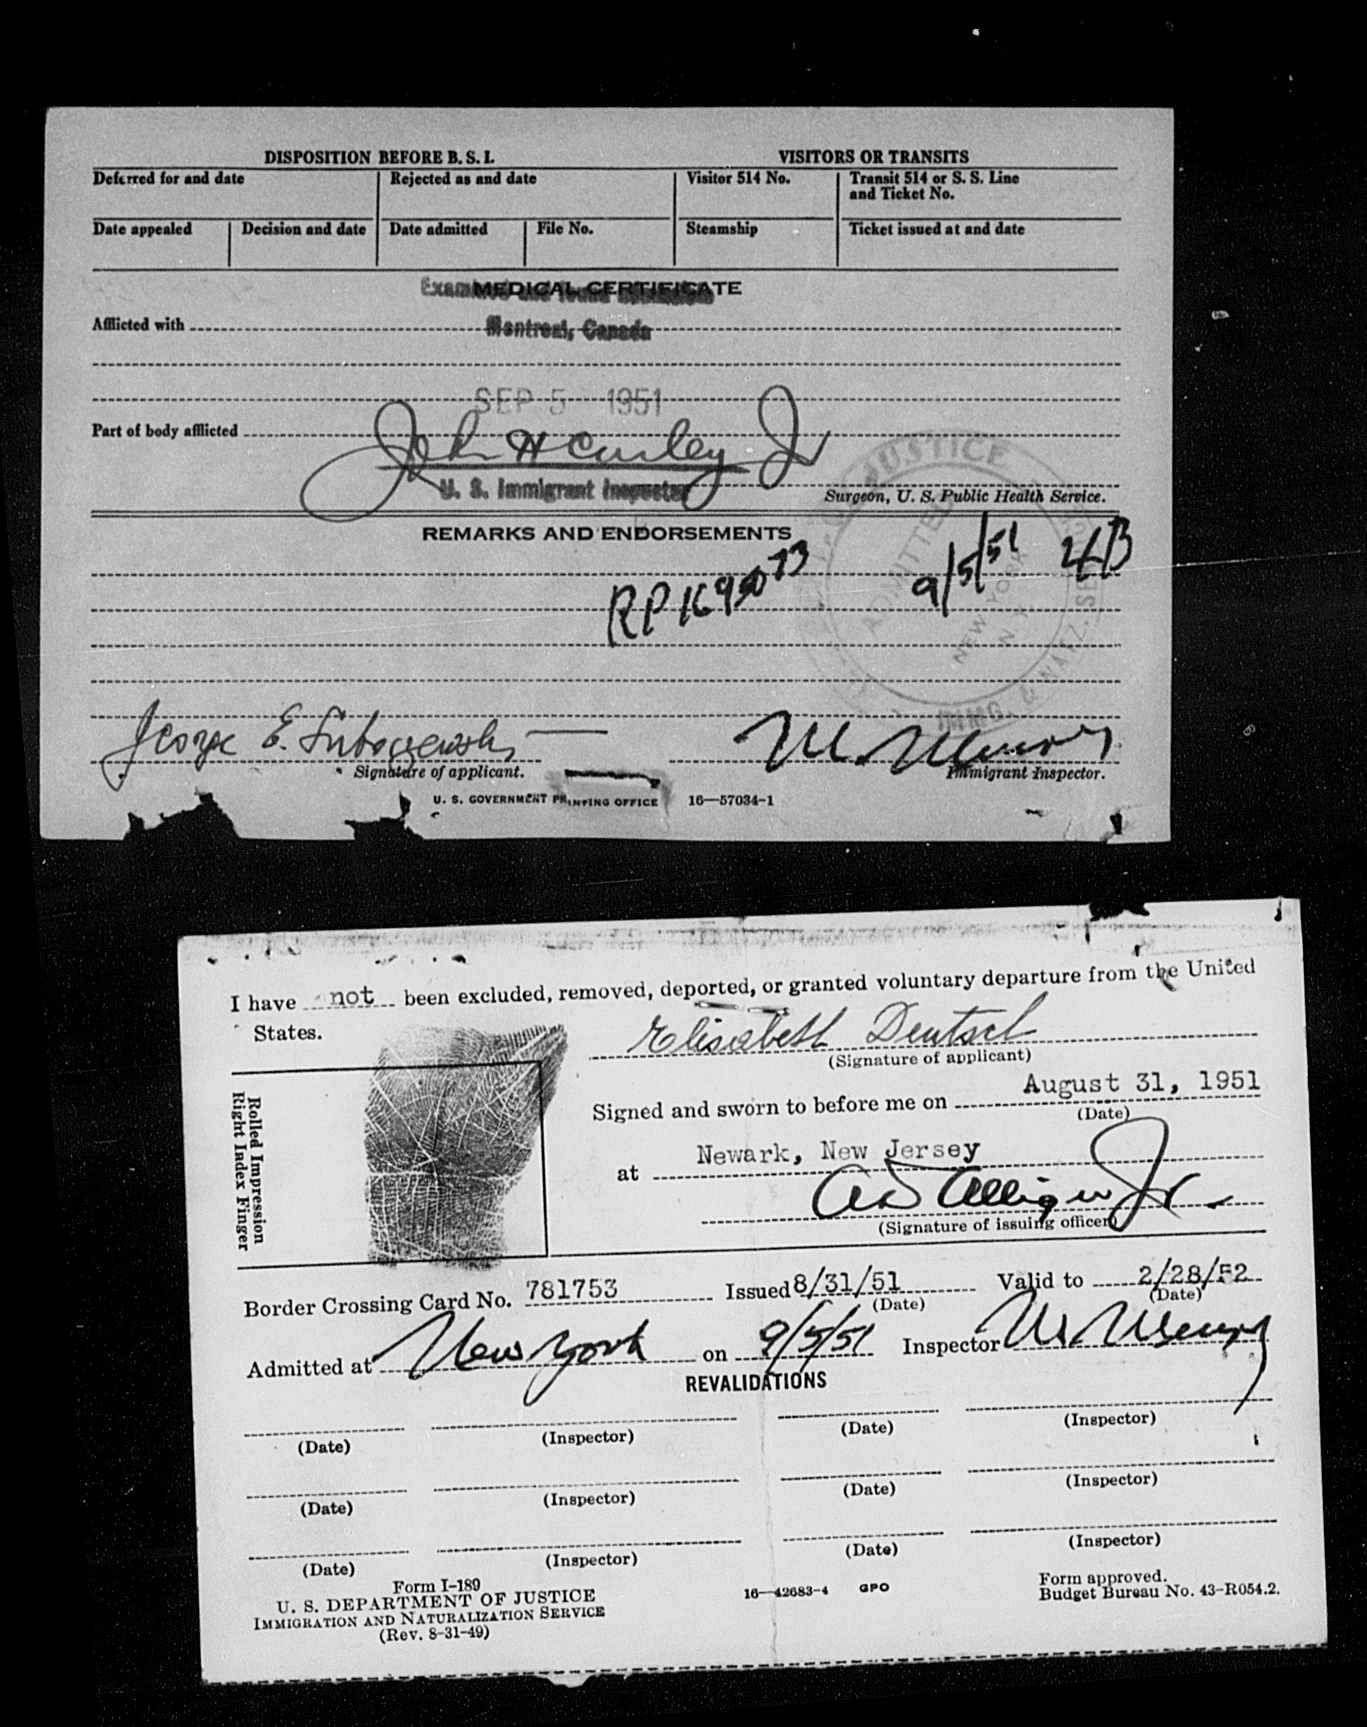 DISPOSITION BEFORE B. S. I.
VISITORS OR TRANSITS
Deferred for and date
Rejected as and date
Visitor 514 No.
Transit 514 or S. S. Line
and Ticket No.
Date appealed
Decision and date
Date admitted
File No.
Steamship
Ticket issued at and date
MEDICAL CERTIFICATE
Afflicted with
Montreal, Canada
SEP 5 1951
Part of body afflicted
John H Curley Jr
U. S. Immigrant Inspector
Surgeon, U. S. Public Health Service.
REMARKS AND ENDORSEMENTS
JUSTICE
ADMITTED
NEW YORK
N. Y.
IMMG. & NATZ. SER
9/5/51
George E.
Signature of applicant.
Immigrant Inspector.
U. S. GOVERNMENT PRINTING OFFICE 16—57034-1
I have not been excluded, removed, deported, or granted voluntary departure from the United
States.
Elisabeth Deutsch
(Signature of applicant)
Rolled Impression
Right Index Finger
Signed and sworn to before me on August 31, 1951
(Date)
at Newark, New Jersey
(Signature of issuing officer)
Border Crossing Card No. 781753 Issued 8/31/51 Valid to 2/28/52
(Date) (Date)
Admitted at New York on 9/5/51 Inspector
REVALIDATIONS
(Date) (Inspector) (Date) (Inspector)
(Date) (Inspector) (Date) (Inspector)
(Date) (Inspector) (Date) (Inspector)
Form I-189
U. S. DEPARTMENT OF JUSTICE
IMMIGRATION AND NATURALIZATION SERVICE
(Rev. 8-31-49)
16—42683-4 GPO
Form approved.
Budget Bureau No. 43-R054.2.